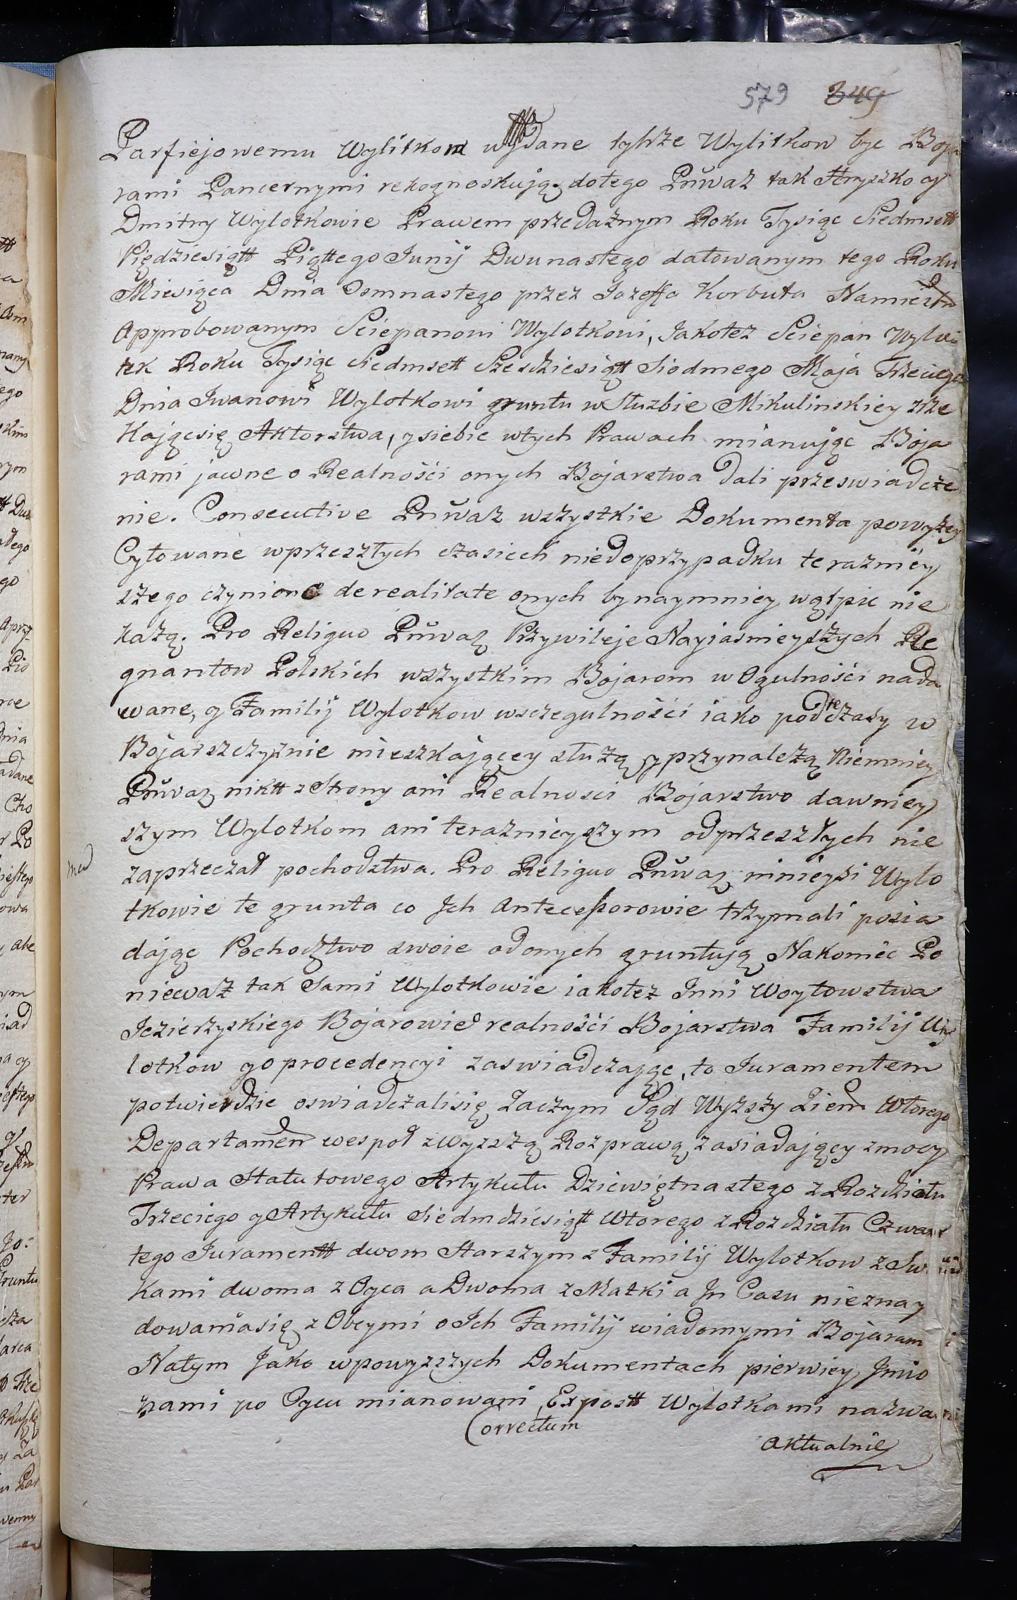 579 349
Parfiejowemu Wylitkom wydane tychże Wylitkow byc Boja
rami Pancernymi rekognoskują, dotego Pnwaz tak Hryszko y
Dmitry Wylotkowie Prawem przedażnym Roku Tysiąc Siedmsett
Pięćdziesiątt Piąttego Junij Dwunastego datowanym tego Roku
Miesiąca Dnia Osmnastego przez Jozeffa Korbuta Namiest
Approbowanym Sciepanowi Wylotkowi, Jakotez Sciepan Wylo
tek Roku Tysiąc Siedmsett Szesdziesiątt Siodmego Maja Trzeciego
Dnia Iwanowi Wylotkowi gruntu w Służbie Mikulinskiey zrze
Kającsię Aktorstwa, y siebie wtych Prawach mianując Boja
rami jawne o Realności onych Bojarstwa dali przeswiadcze
nie. Consecutive Pnwaz wszystkie Dokumenta powyżey
Cytowane wprzeszłych czasiech niedoprzypadku teraźniey
szego czynione de realitate onych bynaymniey wątpic nie
każą. Pro Reliquo Pnwaz Przywileje Nayiasnieyszych Re
gnantow Polskich wszystkim Bojarom w Ogulności nada
wane, y Familij Wylotkow wszczegulności iako podtezasy w
Bojarszczyznie mieszkającey służą y przynależą Niemniey
Pnwaz niktt z Strony ani Realnosci Bojarstwo dawniey
szym Wylotkom ani teraznieyszym odprzeszłych nie
zaprzeczał pochodztwa. Pro Reliquo Pnwaz ninieysi Wylo
tkowie te grunta co Jch Antecessorowie trzymali posia
dając Pochodztwo swoie odonych gruntują Nakoniec Po
niewaz tak Sami Wylotkowie iakotez Jnni Woytowstwa
Jezierzyskiego Bojarowie o realności Bojarstwa Familij Wy
lotkow y o procedencyi zaswiadczając, to Juramentem
potwierdzic oswiadczalisię Zaczym Sąd Wyższy Ziem Wtorego
Departamen wespoł zwyzszą Rozprawą zasiadający zmocy
Prawa Statutowego Artykułu Dziewiętnastego z Rozdziału
Trzeciego y Artykułu Siedmdziesiąt Wtorego z Rozdziału Czwar
tego Juramentt dwom Starszym z Familij Wylotkow z Sw
kami dwoma z Oyca a Dwoma z Matki a Jn Casu nieznay
dowaniasię z Obcymi o Jch Familij wiadomymi Bojaram
Natym Jako wpowyzszych Dokumentach pierwiey Jmio
nami po Oycu mianowani, Expostt Wylotkami nazwa
Correctum
aktualnie